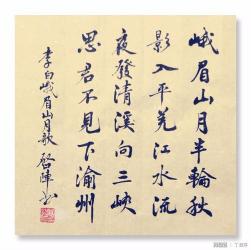 峨眉山月半輪秋
影入平羌江水流
夜發清溪向三峽
思君不見下渝州
李白峨眉山月歌 啓陣书